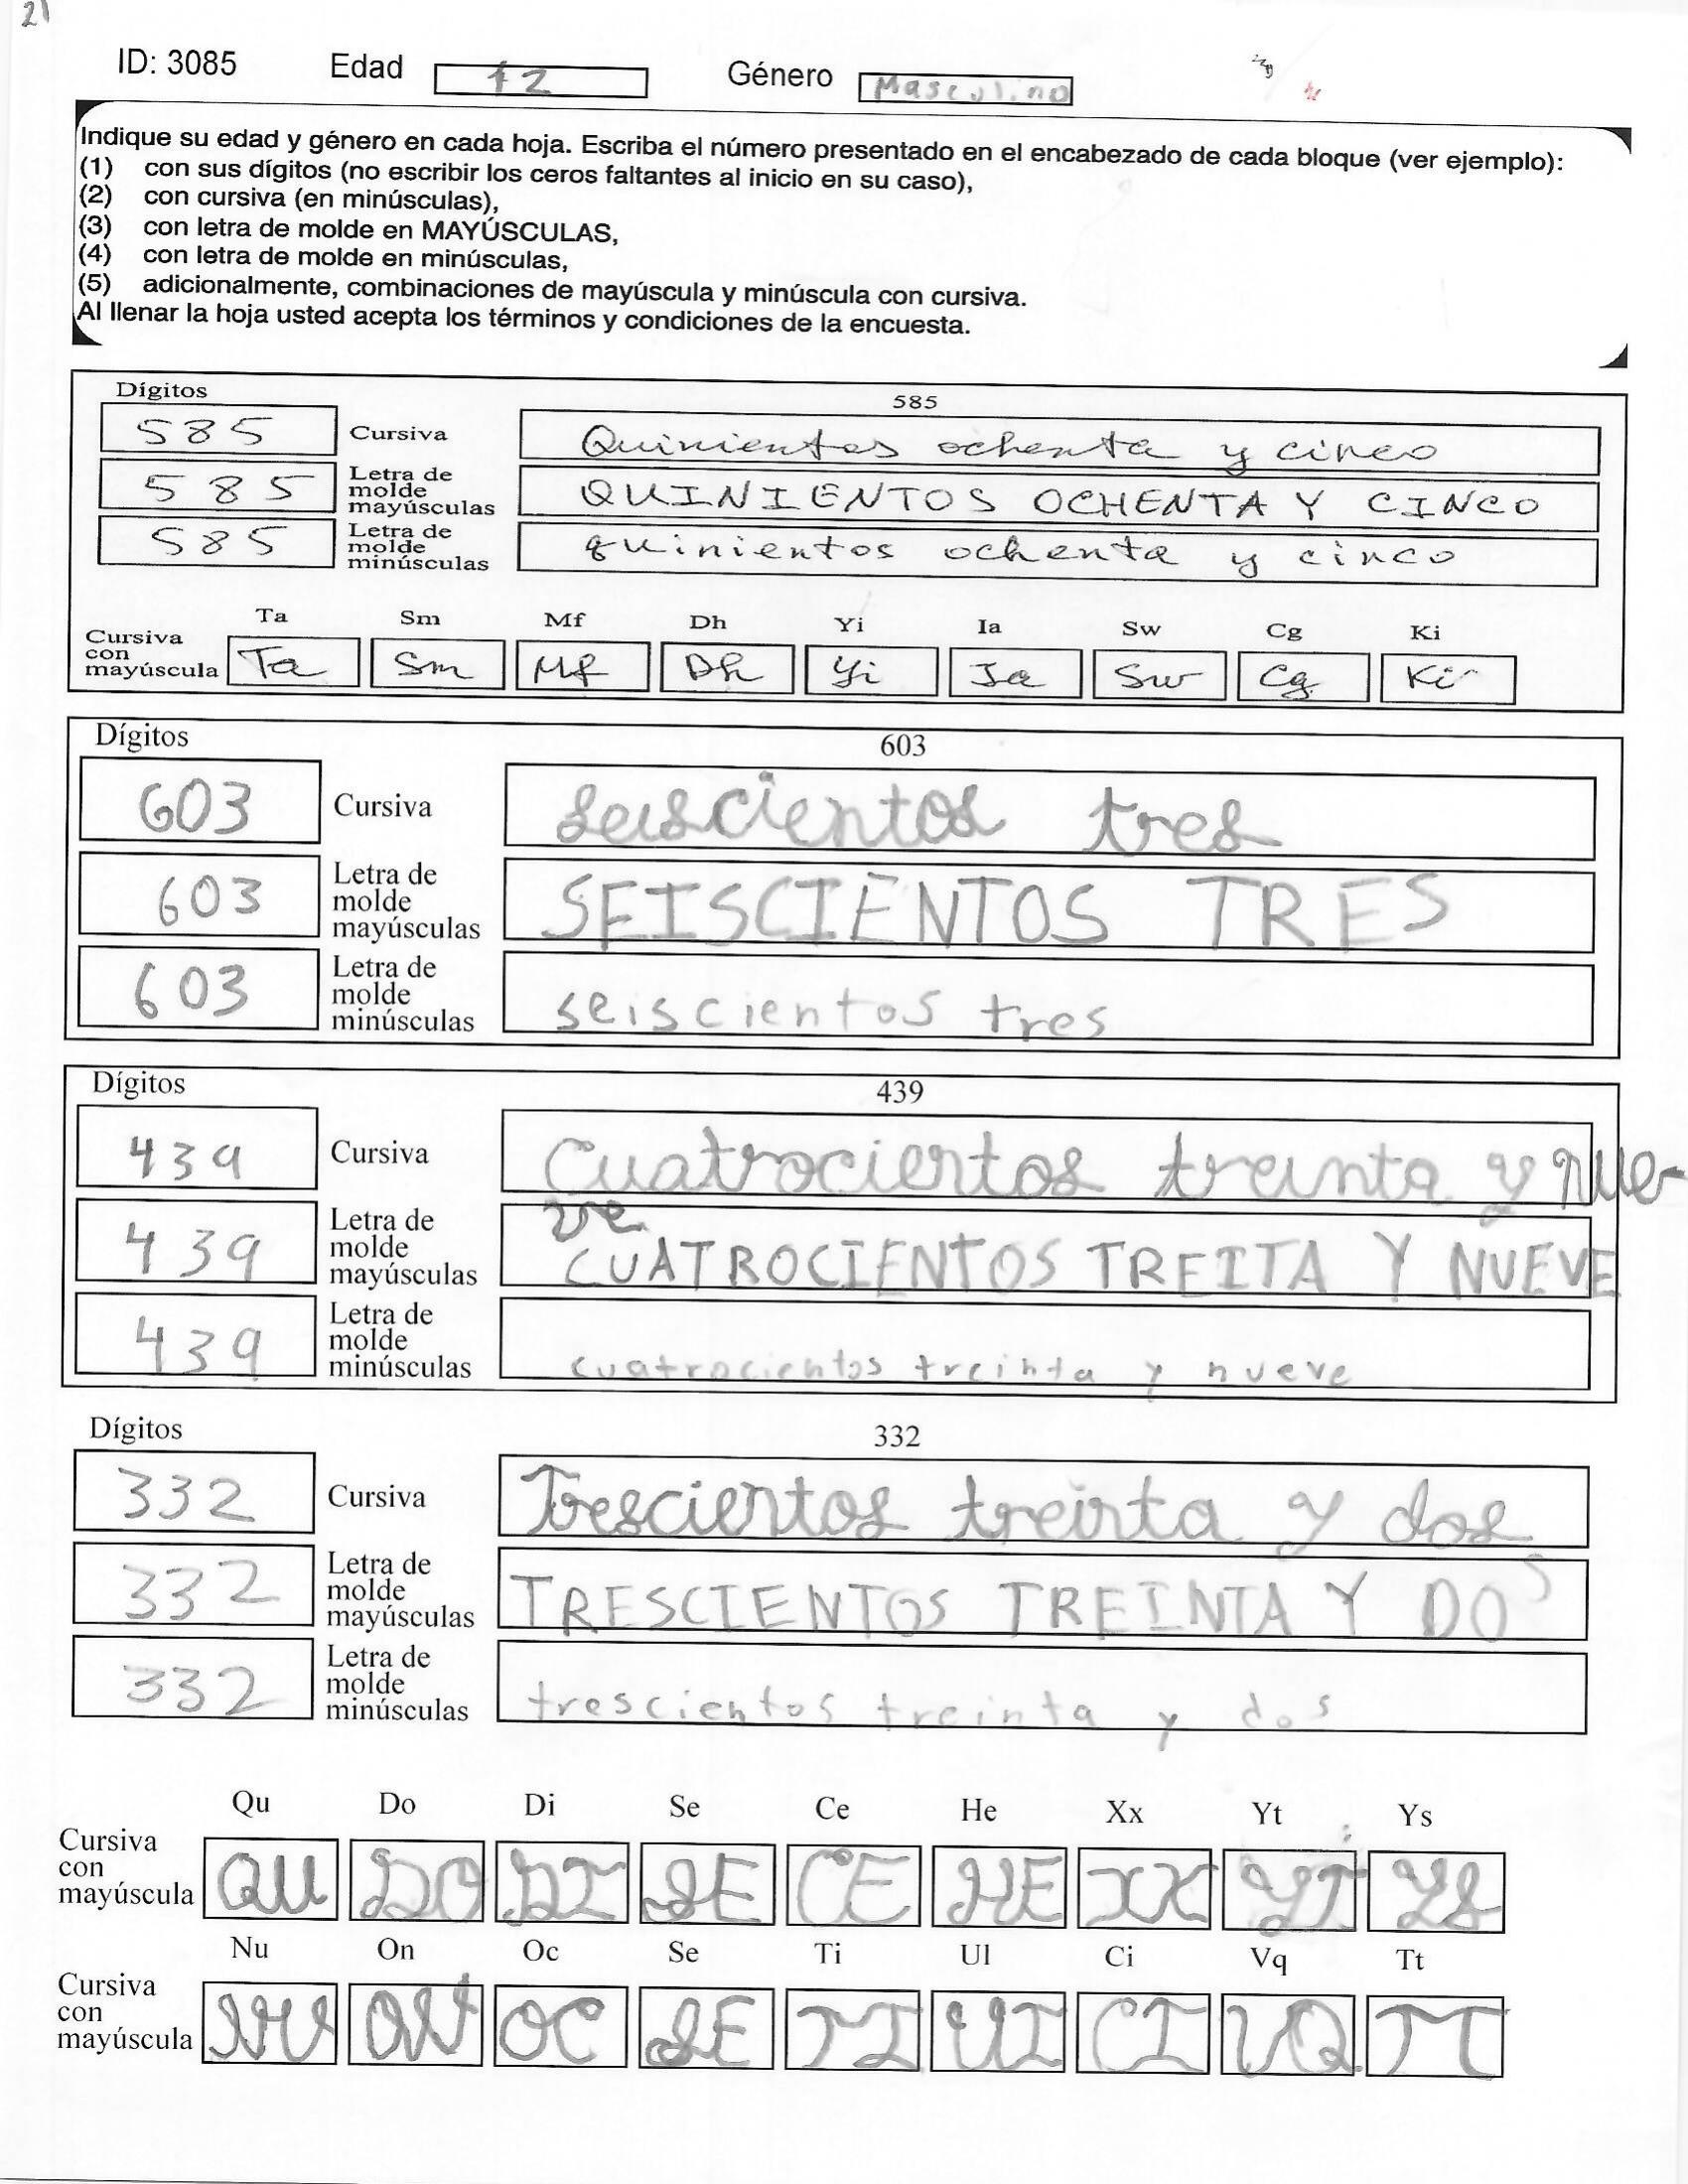 21
ID: 3085 Edad 12 Género Masculino
Indique su edad y género en cada hoja. Escriba el número presentado en el encabezado de cada bloque (ver ejemplo):
(1) con sus dígitos (no escribir los ceros faltantes al inicio en su caso),
(2) con cursiva (en minúsculas),
(3) con letra de molde en MAYÚSCULAS,
(4) con letra de molde en minúsculas,
(5) adicionalmente, combinaciones de mayúscula y minúscula con cursiva.
Al llenar la hoja usted acepta los términos y condiciones de la encuesta.
Dígitos 585
585 Cursiva Quinientos ochenta y cinco
585 Letra de molde mayúsculas QUINIENTOS OCHENTA Y CINCO
585 Letra de molde minúsculas quinientos ochenta y cinco
Ta Sm Mf Dh Yi Ia Sw Cg Ki
Cursiva con mayúscula Ta Sm Mf Dh Yi Ia Sw Cg Ki
Dígitos 603
603 Cursiva seiscientos tres
603 Letra de molde mayúsculas SEISCIENTOS TRES
603 Letra de molde minúsculas seiscientos tres
Dígitos 439
439 Cursiva Cuatrocientos treinta y nue-
ve
439 Letra de molde mayúsculas CUATROCIENTOS TREITA Y NUEVE
439 Letra de molde minúsculas cuatrocientos treinta y nueve
Dígitos 332
332 Cursiva Trescientos treinta y dos
332 Letra de molde mayúsculas TRESCIENTOS TREINTA Y DOS
332 Letra de molde minúsculas trescientos treinta y dos
Qu Do Di Se Ce He Xx Yt Ys
Cursiva con mayúscula QU DO DI SE CE HE XX YT YS
Nu On Oc Se Ti Ul Ci Vq Tt
Cursiva con mayúscula NU ON OC SE TI UI CI VQ TT